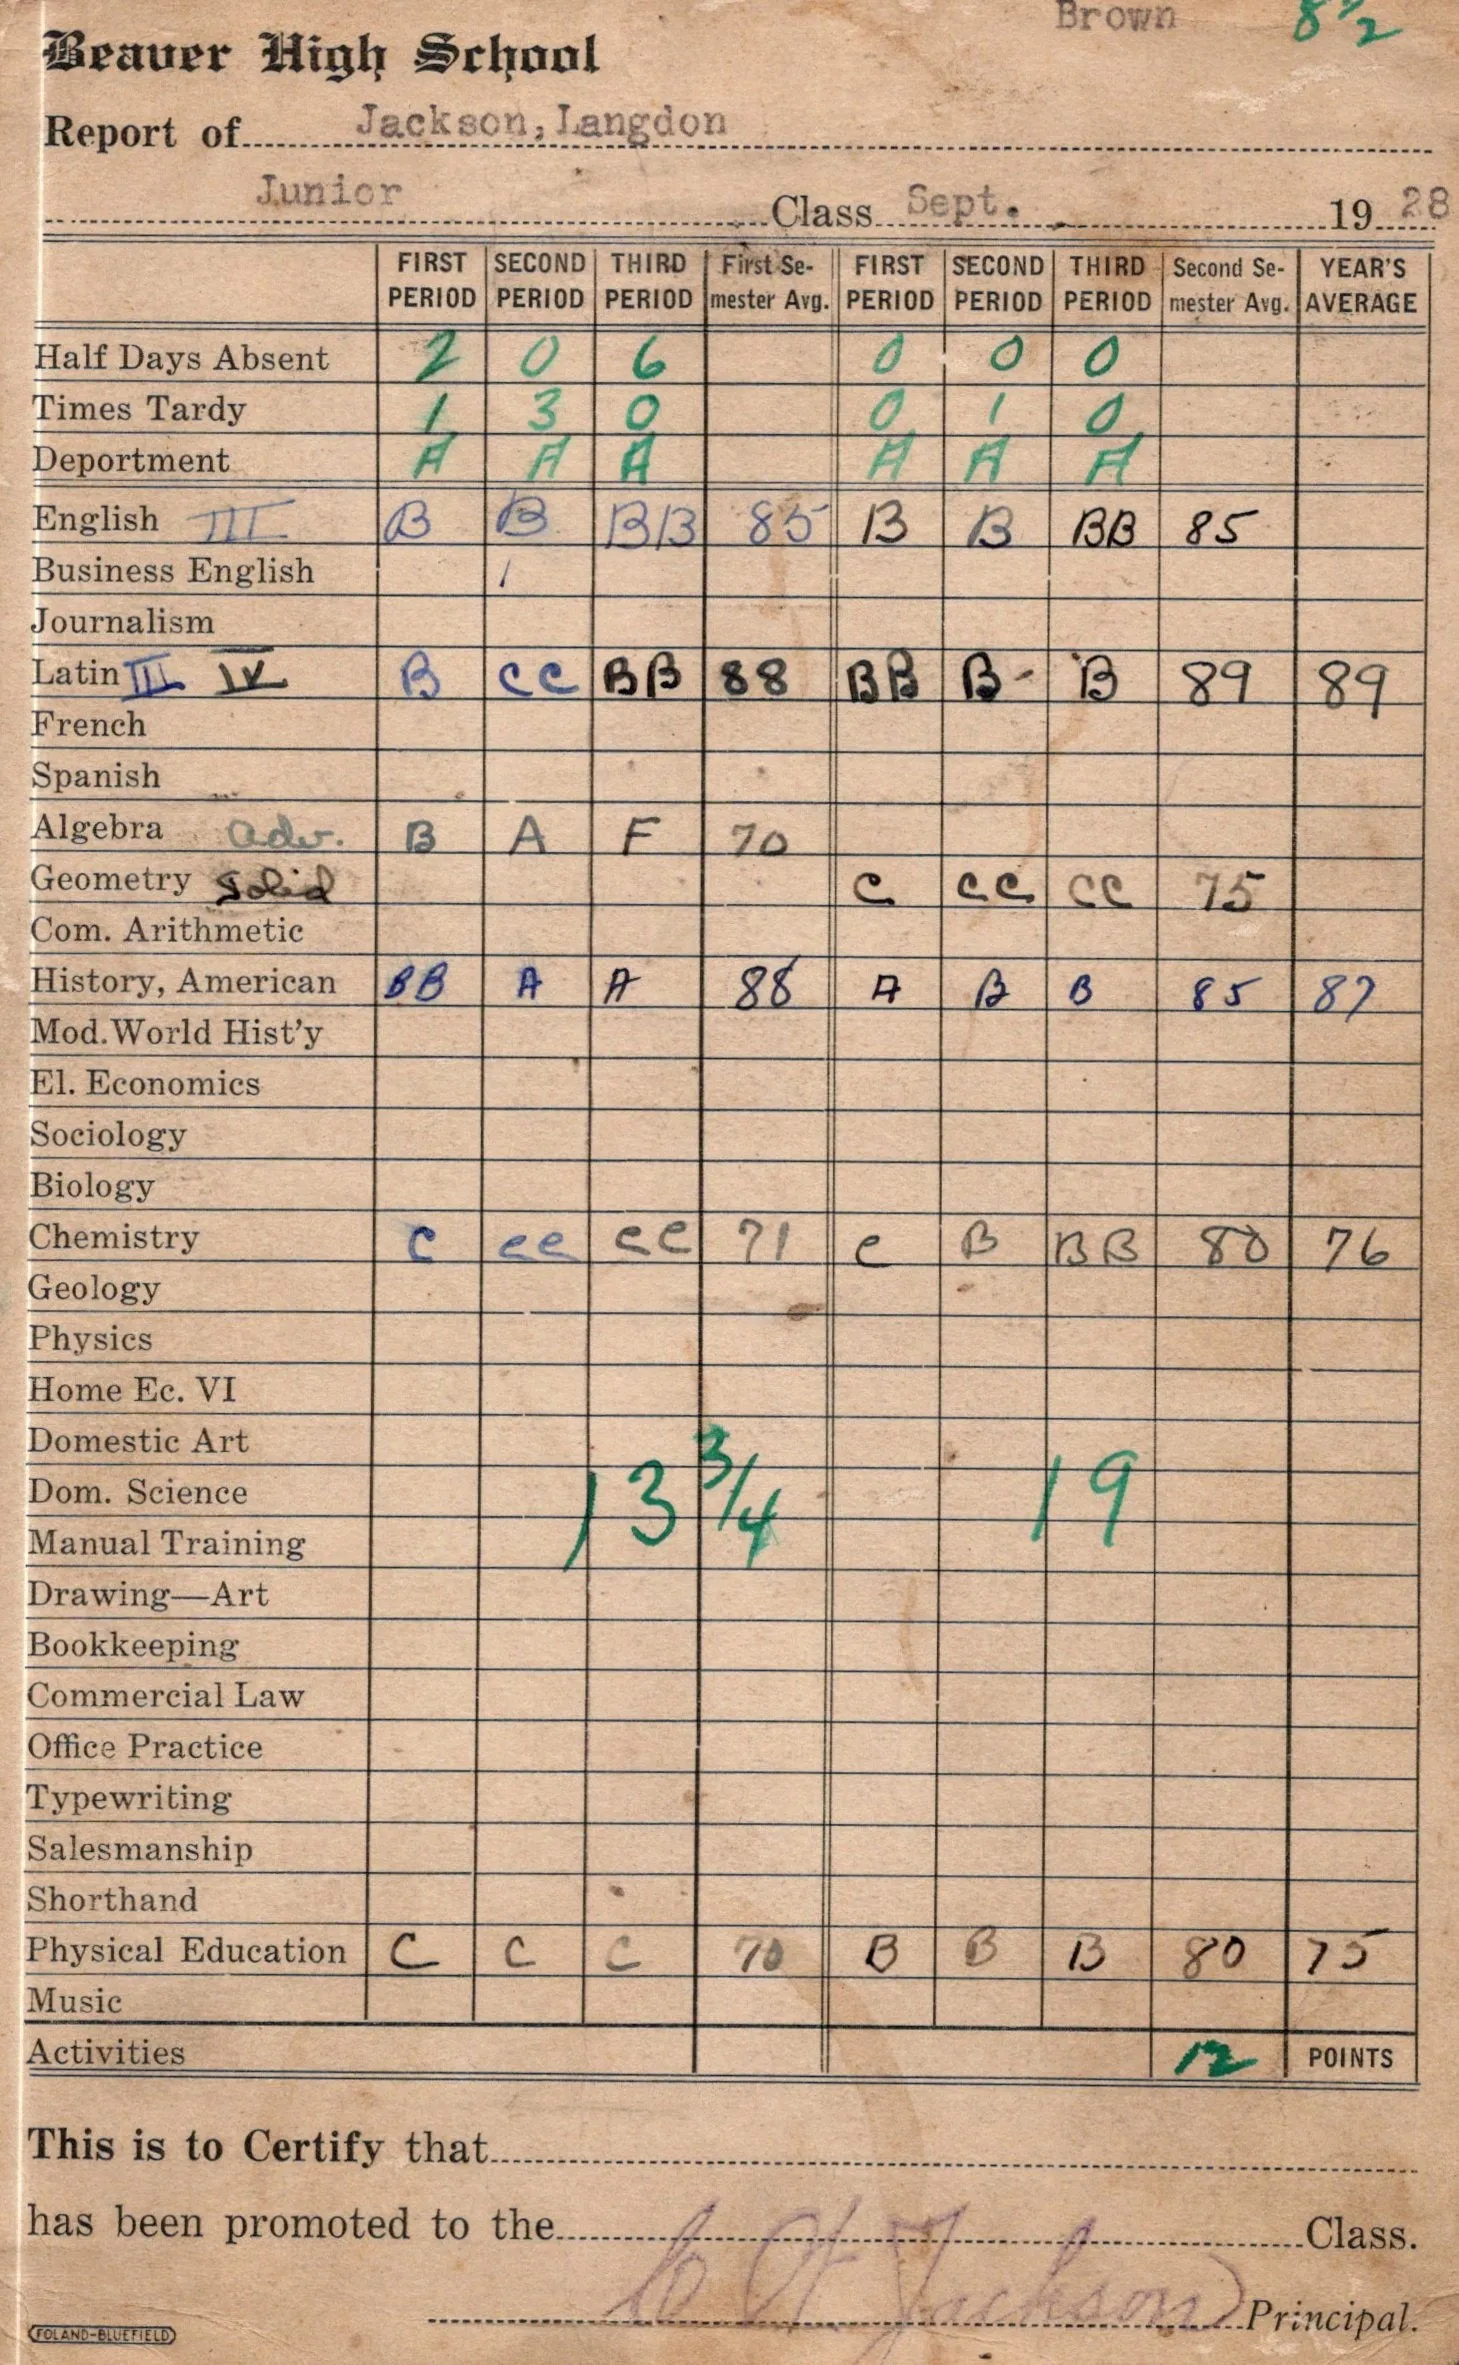 Brown 8 1/2
Beaver High School
Report of Jackson, Langdon
Junior Class Sept. 1928
FIRST PERIOD SECOND PERIOD THIRD PERIOD First Semester Avg. FIRST PERIOD SECOND PERIOD THIRD PERIOD Second Semester Avg. YEAR'S AVERAGE
Half Days Absent 2 0 6 0 0 0
Times Tardy 1 3 0 0 1 0
Deportment A A A A A A
English III B B BB 85 B B BB 85
Business English
Journalism
Latin III IV B CC BB 88 BB B- B 89 89
French
Spanish
Algebra adv. B A F 70
Geometry Solid C CC CC 75
Com. Arithmetic
History, American BB A A 88 A B B 85 87
Mod. World Hist'y
El. Economics
Sociology
Biology
Chemistry C CC CC 71 C B BB 80 76
Geology
Physics
Home Ec. VI
Domestic Art
Dom. Science 13 3/4 19
Manual Training
Drawing—Art
Bookkeeping
Commercial Law
Office Practice
Typewriting
Salesmanship
Shorthand
Physical Education C C C 70 B B B 80 75
Music
Activities 12 POINTS
This is to Certify that
has been promoted to the Class.
Jackson Principal.
FOLAND-BLUEFIELD